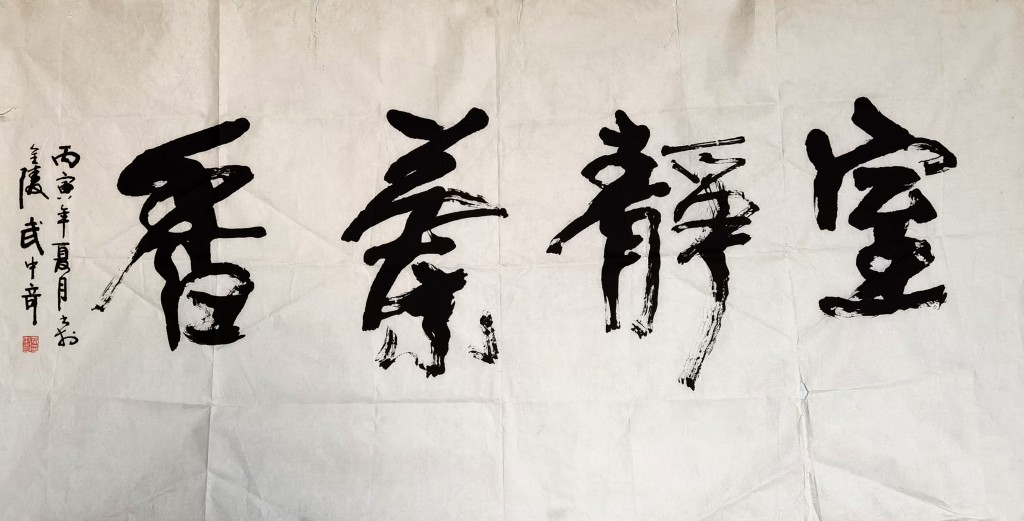 室靜茶香
丙寅年夏月书於
金陵 武中奇